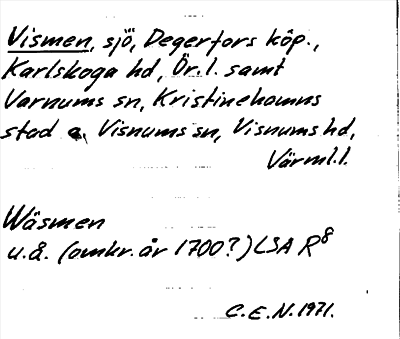 Vismen, sjö, Degerfors köp.,
Karlskoga hd, Ör. l. samt
Varnums sn, Kristinehamns
stad o. Visnums sn, Visnums hd,
Värml. l.
Wäsmen
u.å. (omkr. år 1700?) LSA R8
C.E.N. 1971.